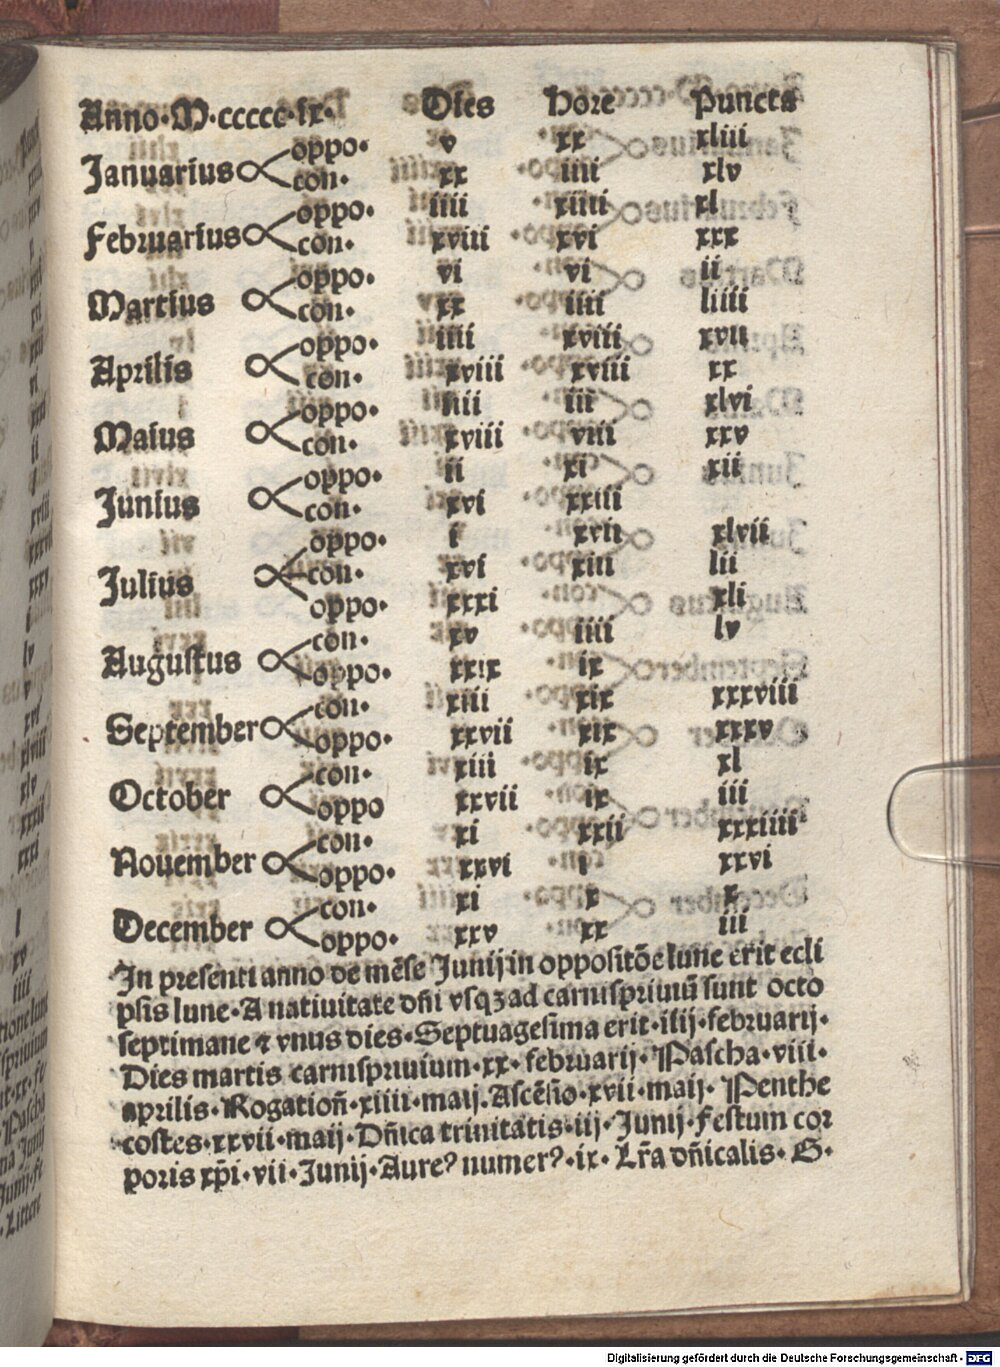 Anno·M·ccccc·ix· Dies Hore Puncta
Januarius oppo· v xx xliii
con· xx iiii xlv
Februarius oppo· iiii xiiii xl
con· xviii xvi xxx
Martius oppo· vi vi ii
con· xx iiii liiii
Aprilis oppo· iiii xviii xvii
con· xviii xviii xx
Maius oppo· iiii iii xlvi
con· xviii viii xxv
Junius oppo· ii xi xii
con· xvi xxiii
Julius oppo· i xvii xlvii
con· xvi xiii lii
oppo· xxxi xli
Augustus con· xv iiii lv
oppo· xxix ix
September con· xiii xix xxxviii
oppo· xxvii xix xxxv
October con· xiii ix xl
oppo xxvii ix iii
Nouember con· xi xxii xxxiiii
oppo· xxvi i xxvi
December con· xi x x
oppo· xxv xx iii
In presenti anno de mēse Junij in oppositōe lune erit ecli
psis lune·A natiuitate dñi vsqꝫ ad carnispriuiū sunt octo
septimane ⁊ vnus dies·Septuagesima erit·iiij·februarij·
Dies martis carnispriuium·xx·februarij·Pascha·viii·
aprilis·Rogationñ·xiiii·maij.Ascēsio·xvii·maij·Penthe
costes·xxvii·maij·Dñica trinitatis·iij·Junij·Festum cor
poris xp̄i·vii·Junij·Aureꝰ numerꝰ·ix·Lr̄a dñicalis·G·
Digitalisierung gefördert durch die Deutsche Forschungsgemeinschaft - DFG